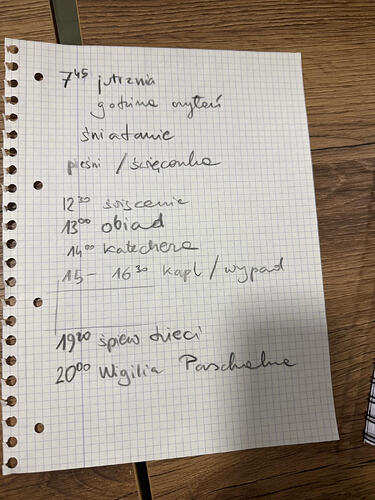 7⁴⁵ jutrznia
godzina czytań
śniadanie
pieśni / święconka
12³⁰ święcenie
13⁰⁰ obiad
14⁰⁰ katecheza
15 - 16³⁰ kapł / wypad
19²⁰ śpiew dzieci
20⁰⁰ Wigilia Paschalna